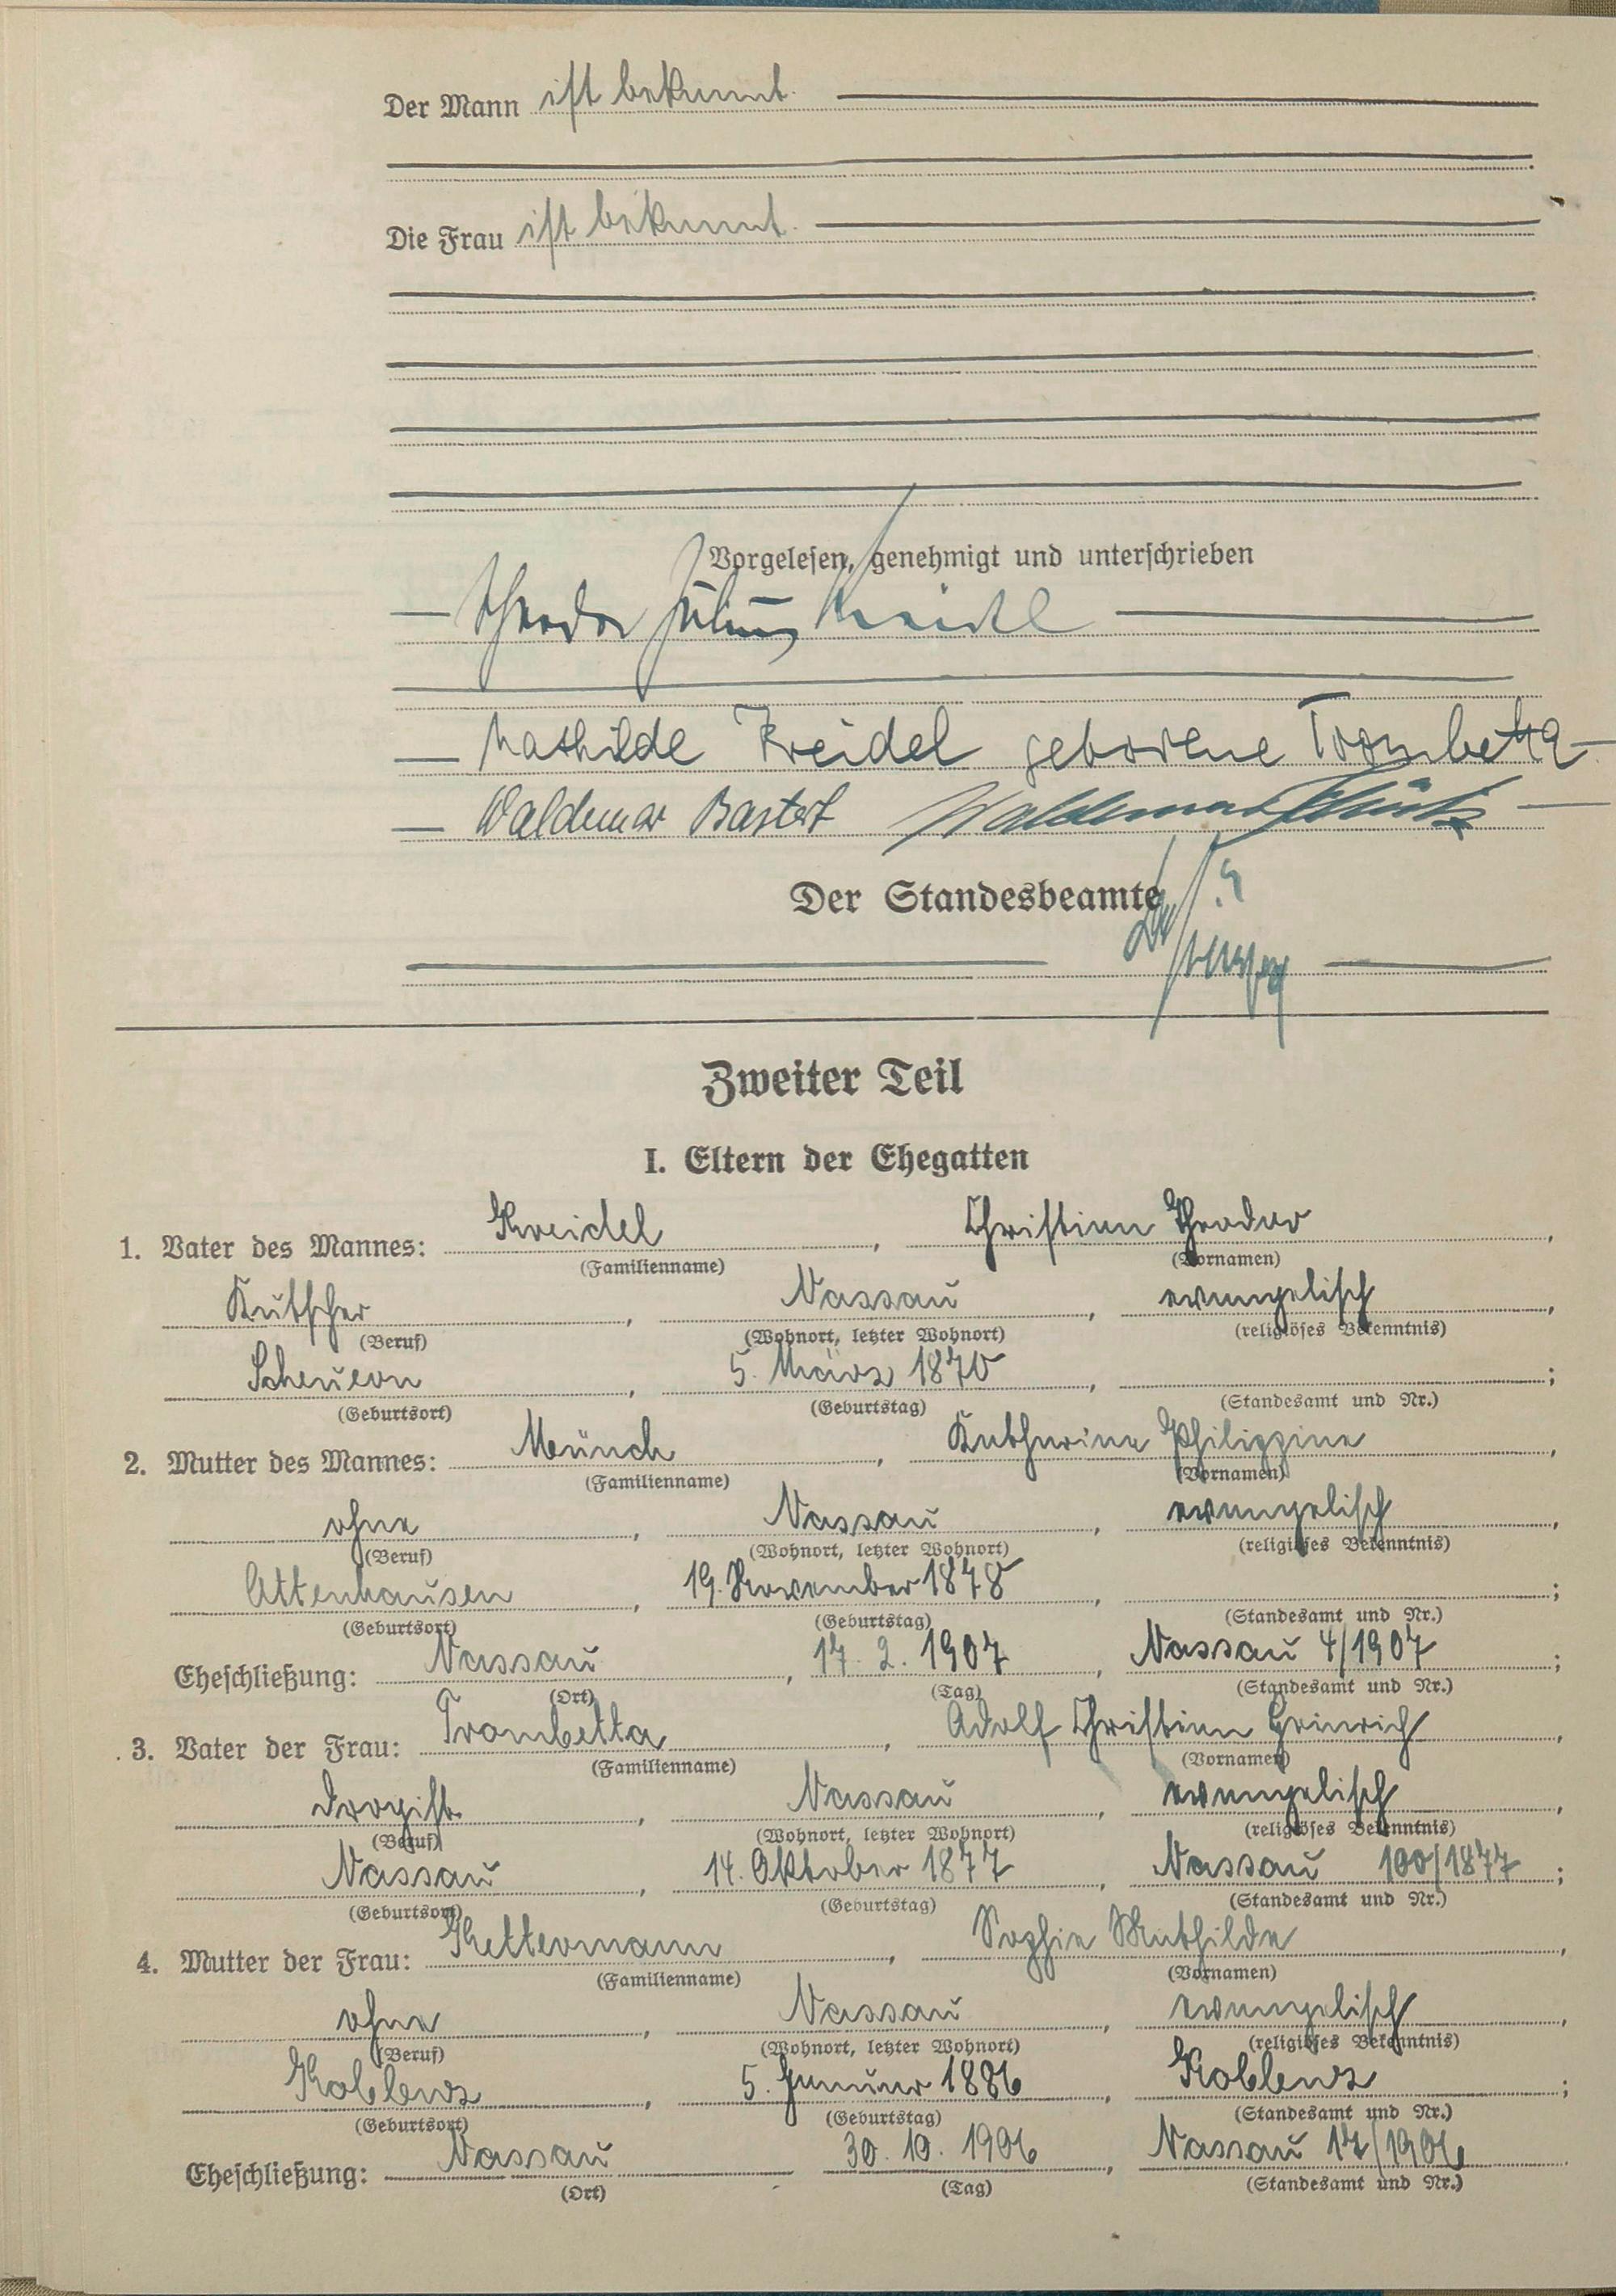 Der Mann ist bekannt.
Die Frau ist bekannt.
Vorgelesen, genehmigt und unterschrieben
Theodor Julius Kreidel
Mathilde Kreidel geborene Trombetta
Waldemar Bastert Waldemar
Der Standesbeamte
Zweiter Teil
I. Eltern der Ehegatten
1. Vater des Mannes: Kreidel, Christian Theodor,
(Familienname) (Vornamen)
Kutscher, Nassau, evangelisch,
(Beruf) (Wohnort, letzter Wohnort) (religiöses Bekenntnis)
Scheuern, 5. März 1870, ;
(Geburtsort) (Geburtstag) (Standesamt und Nr.)
2. Mutter des Mannes: Münch, Katharina Philippine,
(Familienname) (Vornamen)
ohne, Nassau, evangelisch,
(Beruf) (Wohnort, letzter Wohnort) (religiöses Bekenntnis)
Attenhausen, 19. November 1878, ;
(Geburtsort) (Geburtstag) (Standesamt und Nr.)
Eheschließung: Nassau, 17. 2. 1907, Nassau 4/1907;
(Ort) (Tag) (Standesamt und Nr.)
3. Vater der Frau: Trombetta, Adolf Christian Heinrich,
(Familienname) (Vornamen)
Drogist, Nassau, evangelisch,
(Beruf) (Wohnort, letzter Wohnort) (religiöses Bekenntnis)
Nassau, 14. Oktober 1877, Nassau 100/1877;
(Geburtsort) (Geburtstag) (Standesamt und Nr.)
4. Mutter der Frau: Kettermann, Sophie Mathilde,
(Familienname) (Vornamen)
ohne, Nassau, evangelisch,
(Beruf) (Wohnort, letzter Wohnort) (religiöses Bekenntnis)
Koblenz, 5. Januar 1886, Koblenz;
(Geburtsort) (Geburtstag) (Standesamt und Nr.)
Eheschließung: Nassau 30. 10. 1906, Nassau 17/1906
(Ort) (Tag) (Standesamt und Nr.)